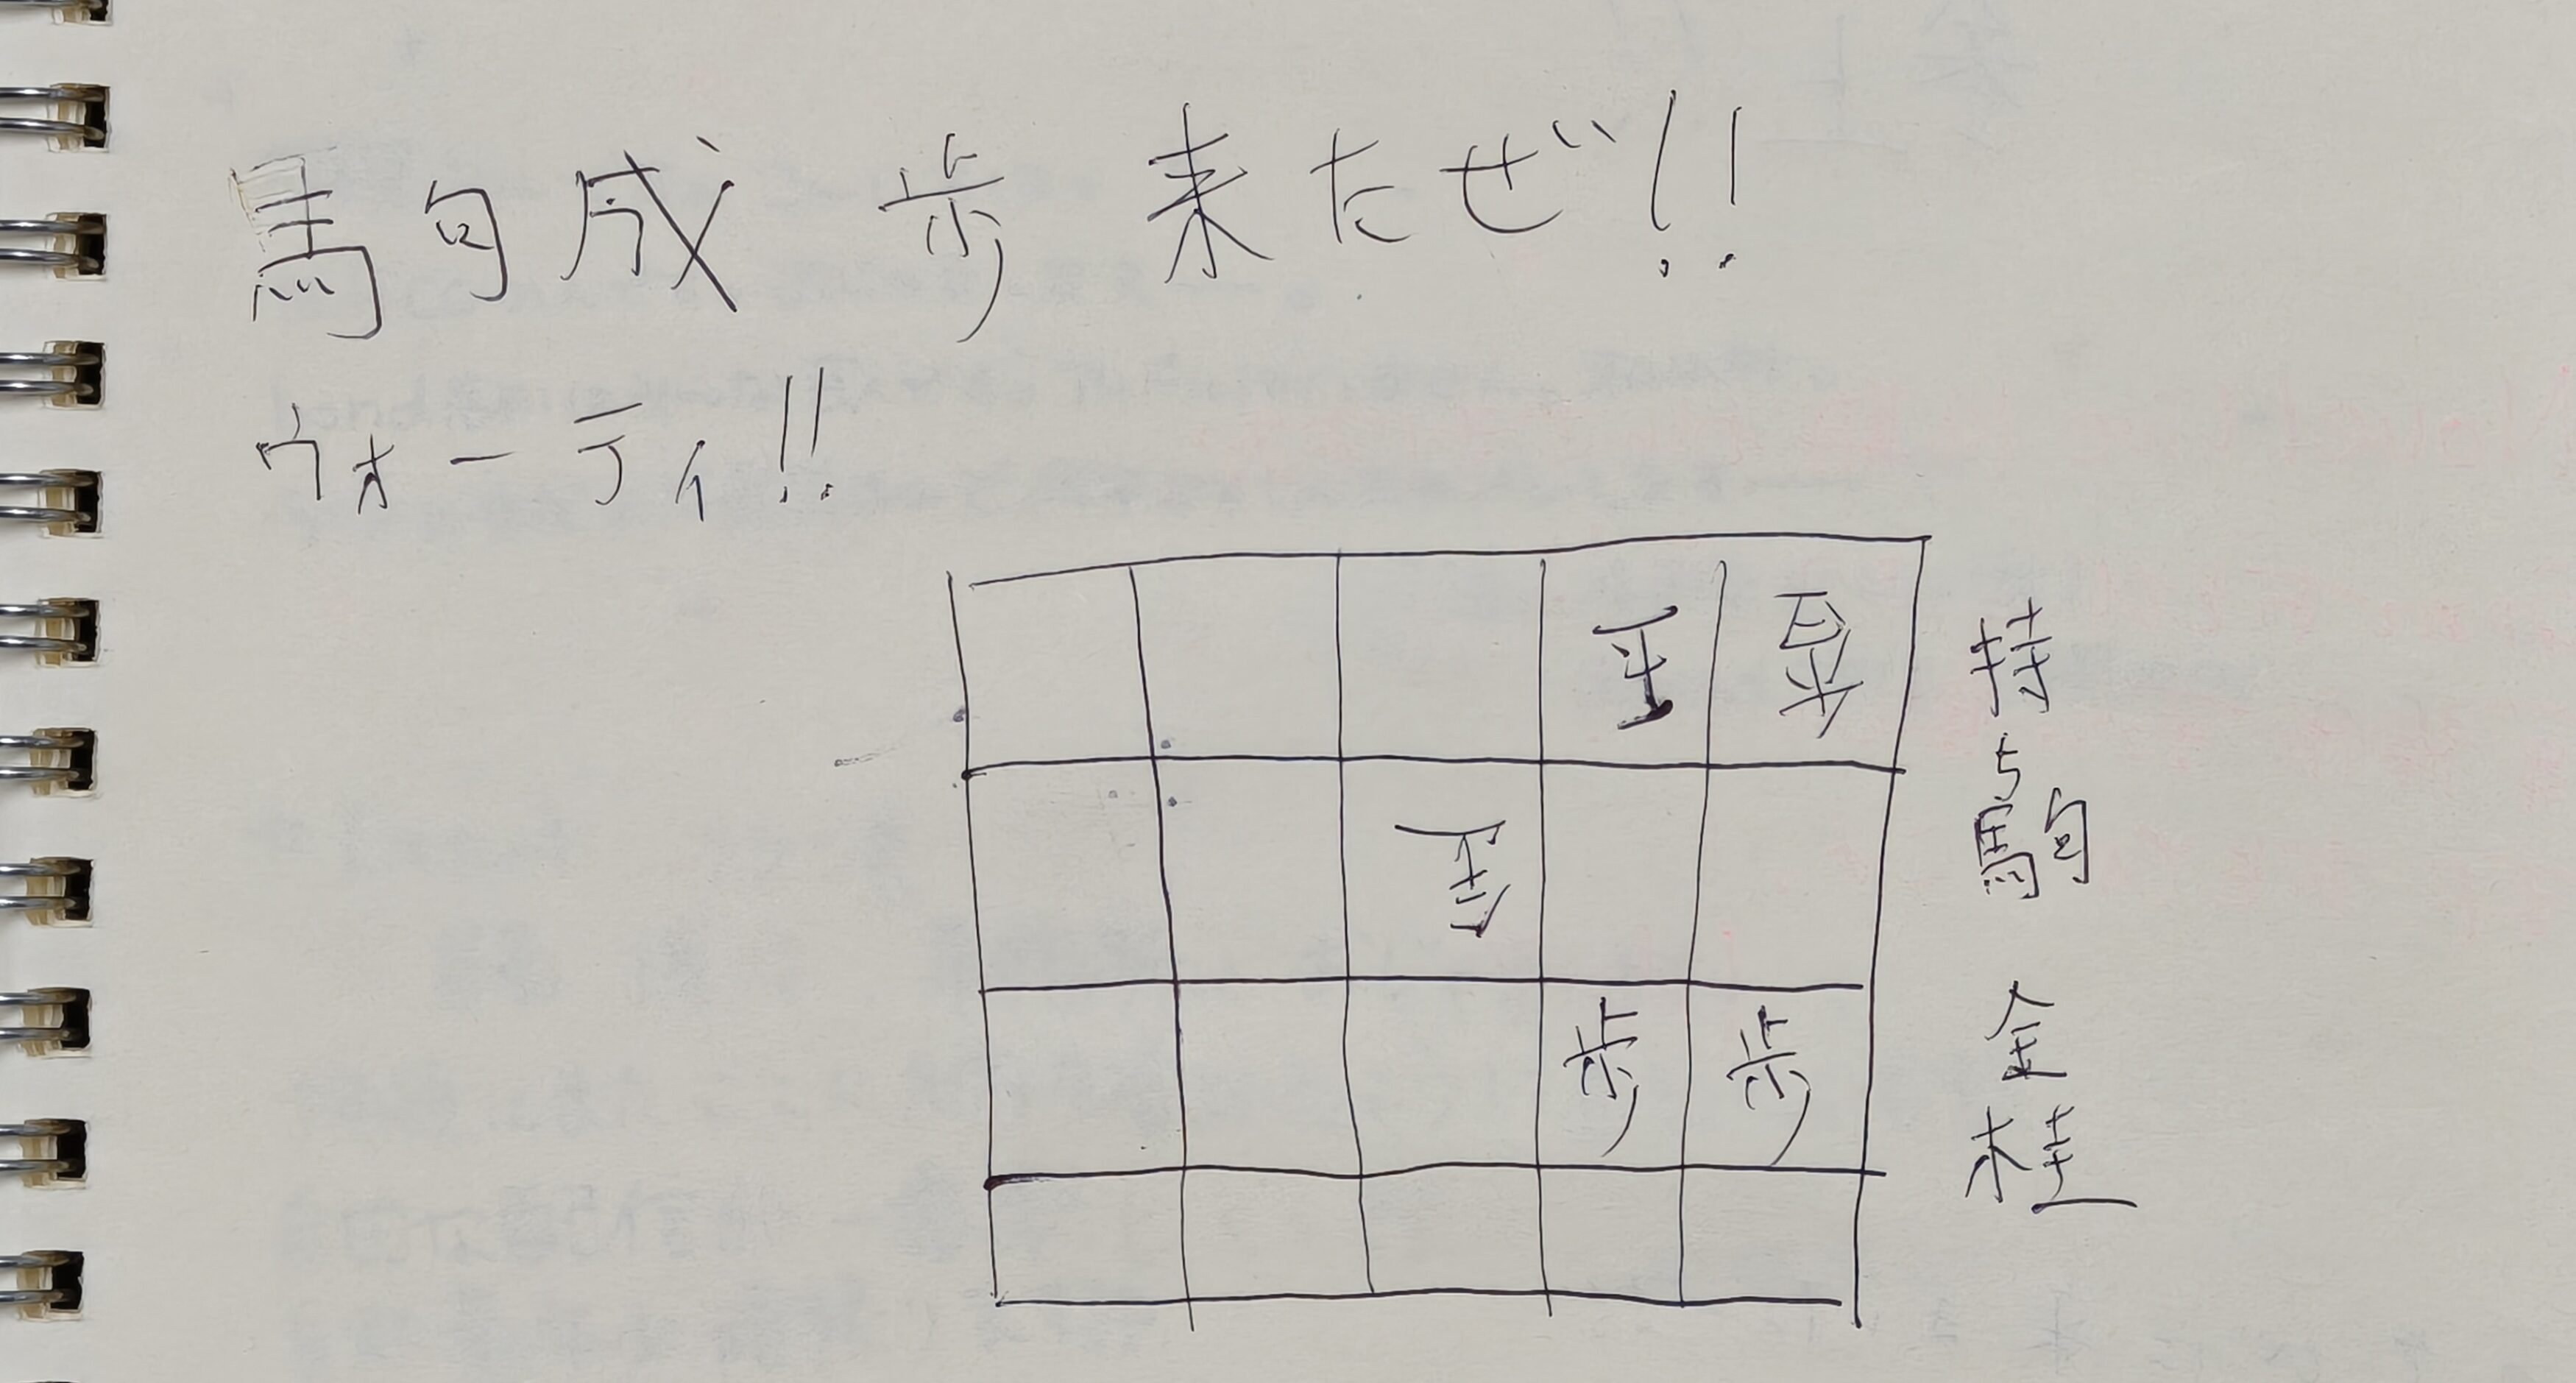 駒成 歩 来たぜ!!
ウォーティ!!
玉 香
金
歩 歩
持ち駒 金 桂